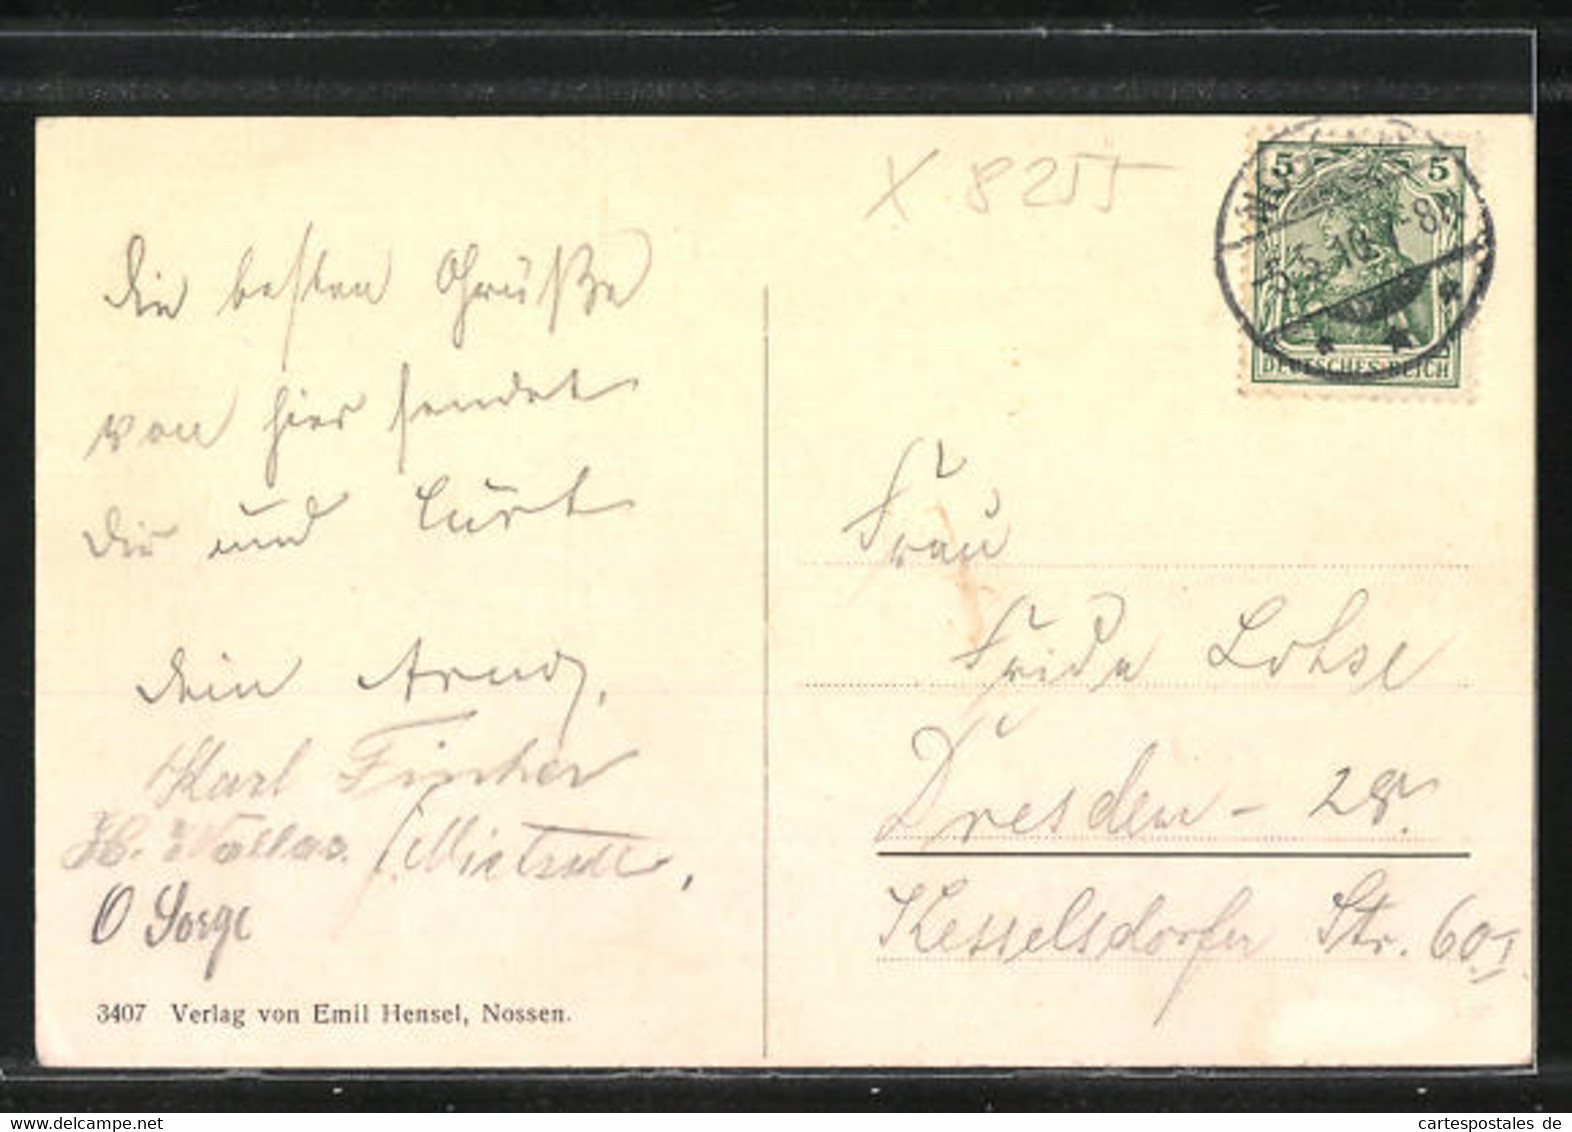 Die besten Grüße
von hier sendet
Dir und Kurt
Dein Arno.
Karl Fischer
O Sorge
3407 Verlag von Emil Hensel, Nossen.
X 8255
5 5
-5.5.10. -8N
DEUTSCHES REICH
Frau
Frida Lohse
Dresden - 28.
Kesselsdorfer Str. 60 I.
www.cartespostales.de